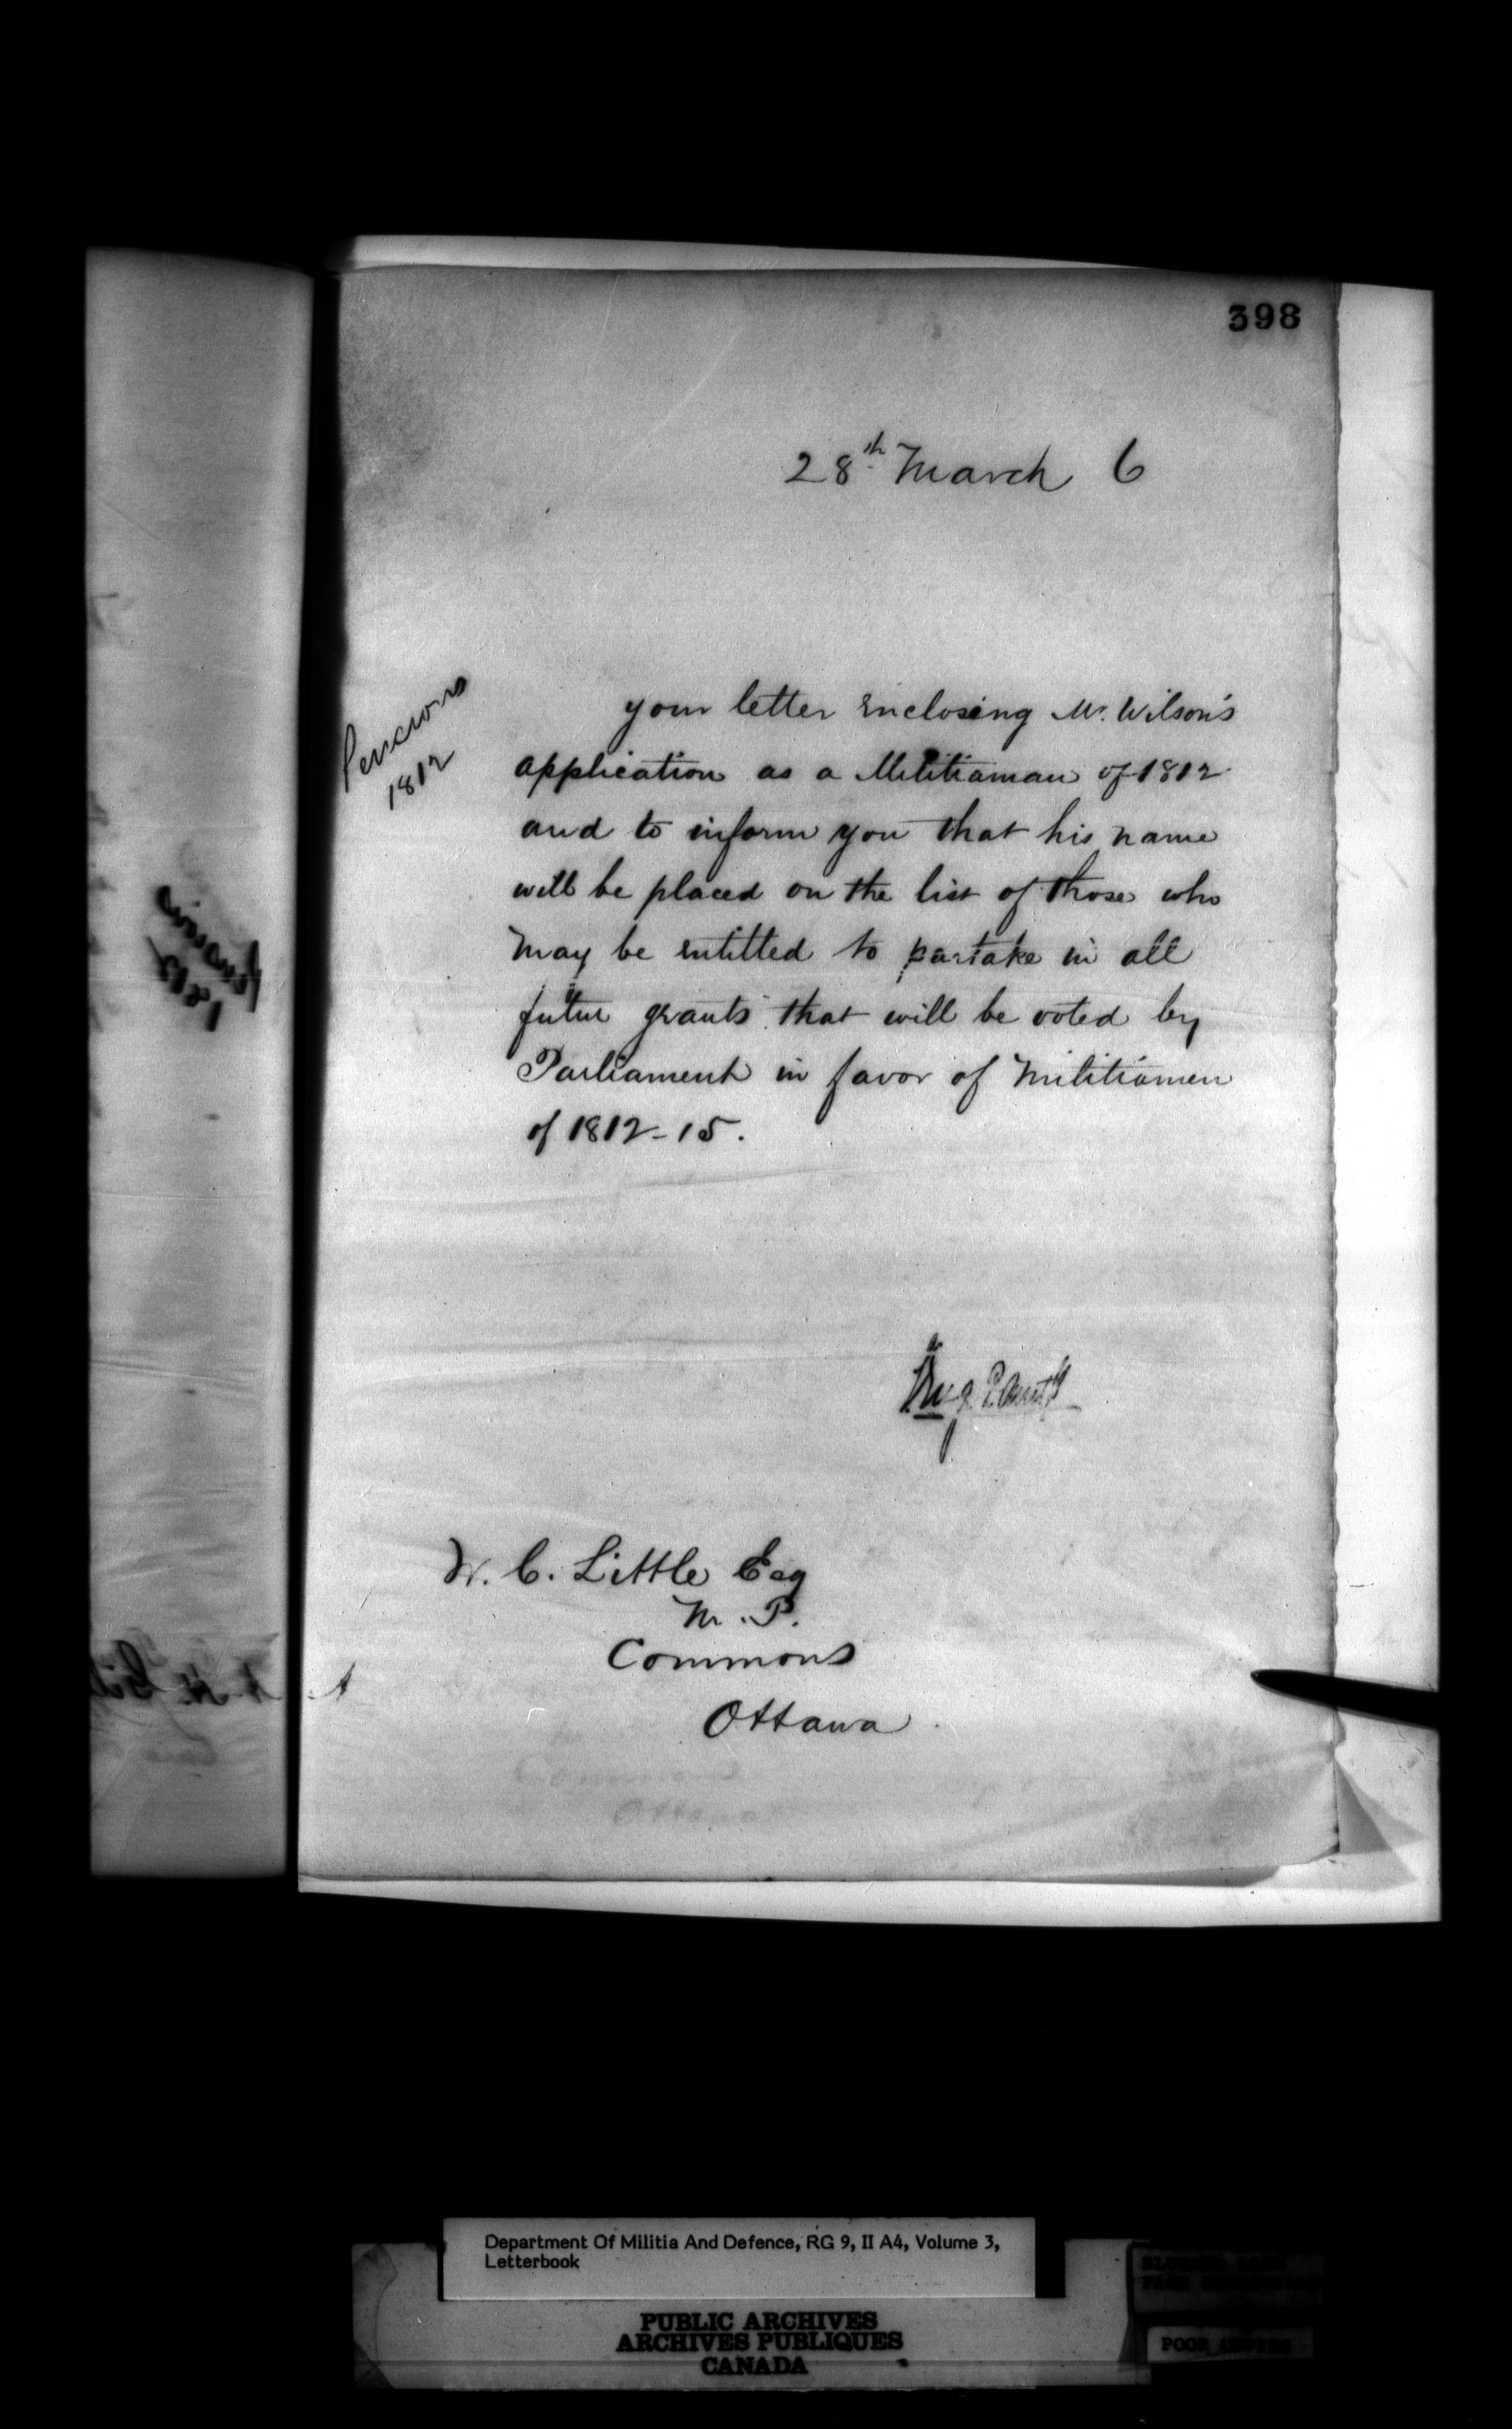 398
28th March 6
Pensions
1812
your letter enclosing Mr. Wilson's
application as a Militiaman of 1812
and to inform you that his name
will be placed on the list of those who
may be entitled to partake in all
future grants that will be voted by
Parliament in favor of Militiamen
of 1812-15.
W. C. Little Esq
M. P.
Commons
Ottawa
Department Of Militia And Defence, RG 9, II A4, Volume 3,
Letterbook
PUBLIC ARCHIVES
ARCHIVES PUBLIQUES
CANADA
POOR